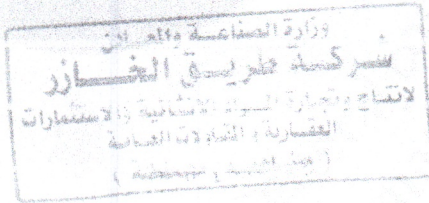 وزارة الصناعة والمعادن
شركة طريق الخازر
لانتاج وتجارة المواد الانشائية والاستثمارات
العقارية والمقاولات العامة